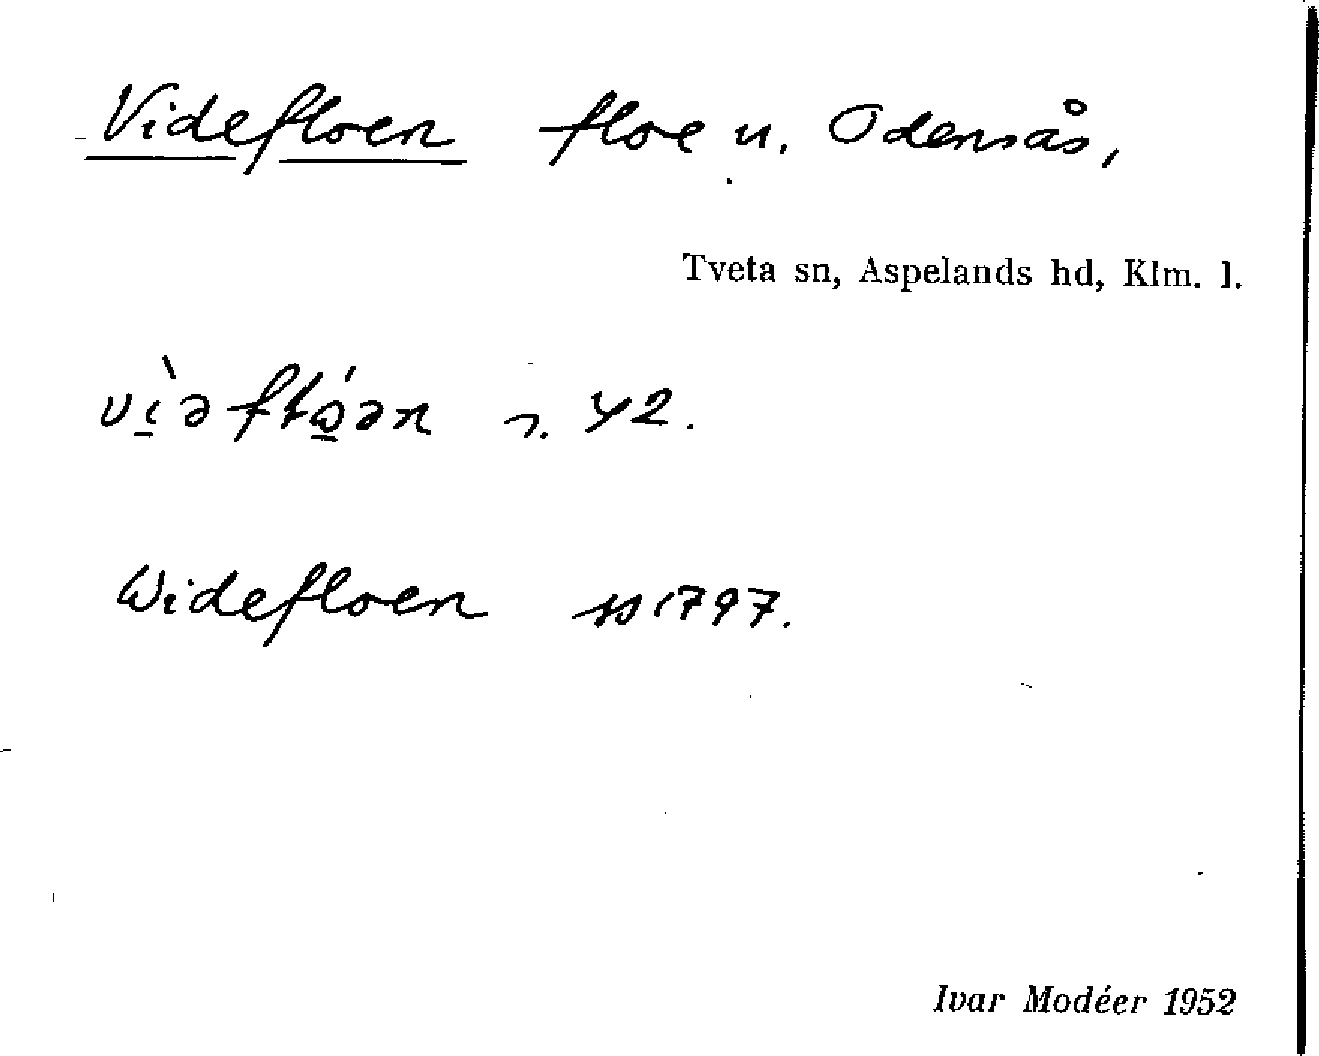 Videfloen floe u. Odensås,
Tveta sn, Aspelands hd, Klm. l.
42.
Widefloen ss 1797.
Ivar Modéer 1952